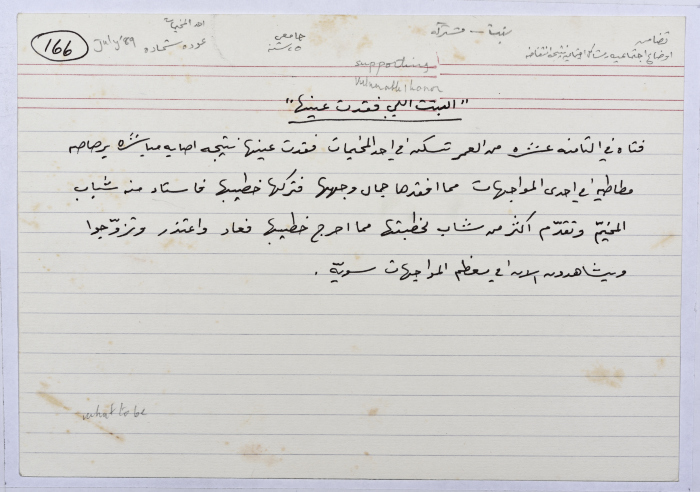 166
July '89
عوده شحاده
جامعي
٢٥ سنة
بنت - مشتركة
تضامن
اوضاع اجتماعيه
supporting
honor
"البنت اللي فقدت عينها"
فتاه في الثامنه عشره من العمر تسكن في احد المخيمات فقدت عينها نتيجه اصابه مباشره برصاصه
مطاطيه في احدى المواجهات مما افقدها جمال وجهها فتركها خطيبها فاستاء منه شباب
المخيّم وتقدّم اكثر من شاب لخطبتها مما احرج خطيبها فعاد واعتذر وتزوّجوا
ويشاهدون الان في معظم المواجهات سويّة .
what to be